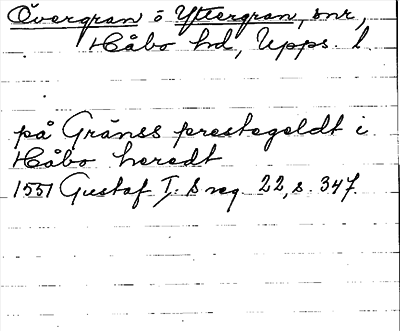 Övergran o Yttergran, snr,
Håbo hd, Upps. l
på Gränss prestegeldt i
Håbo heredt
1551 Gustaf I:s reg. 22, s. 347.